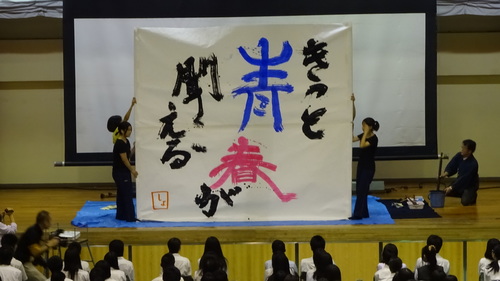 きっと
青春が
聞こえる